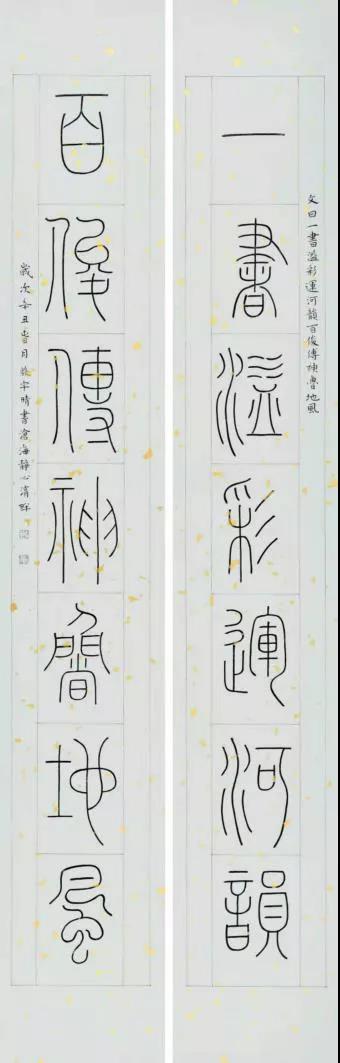 文曰一書溢彩運河韻百俊傳神魯地風
一書溢彩運河韻
百俊傳神魯地風
歲次辛丑春月 宇晴書滄海靜心清